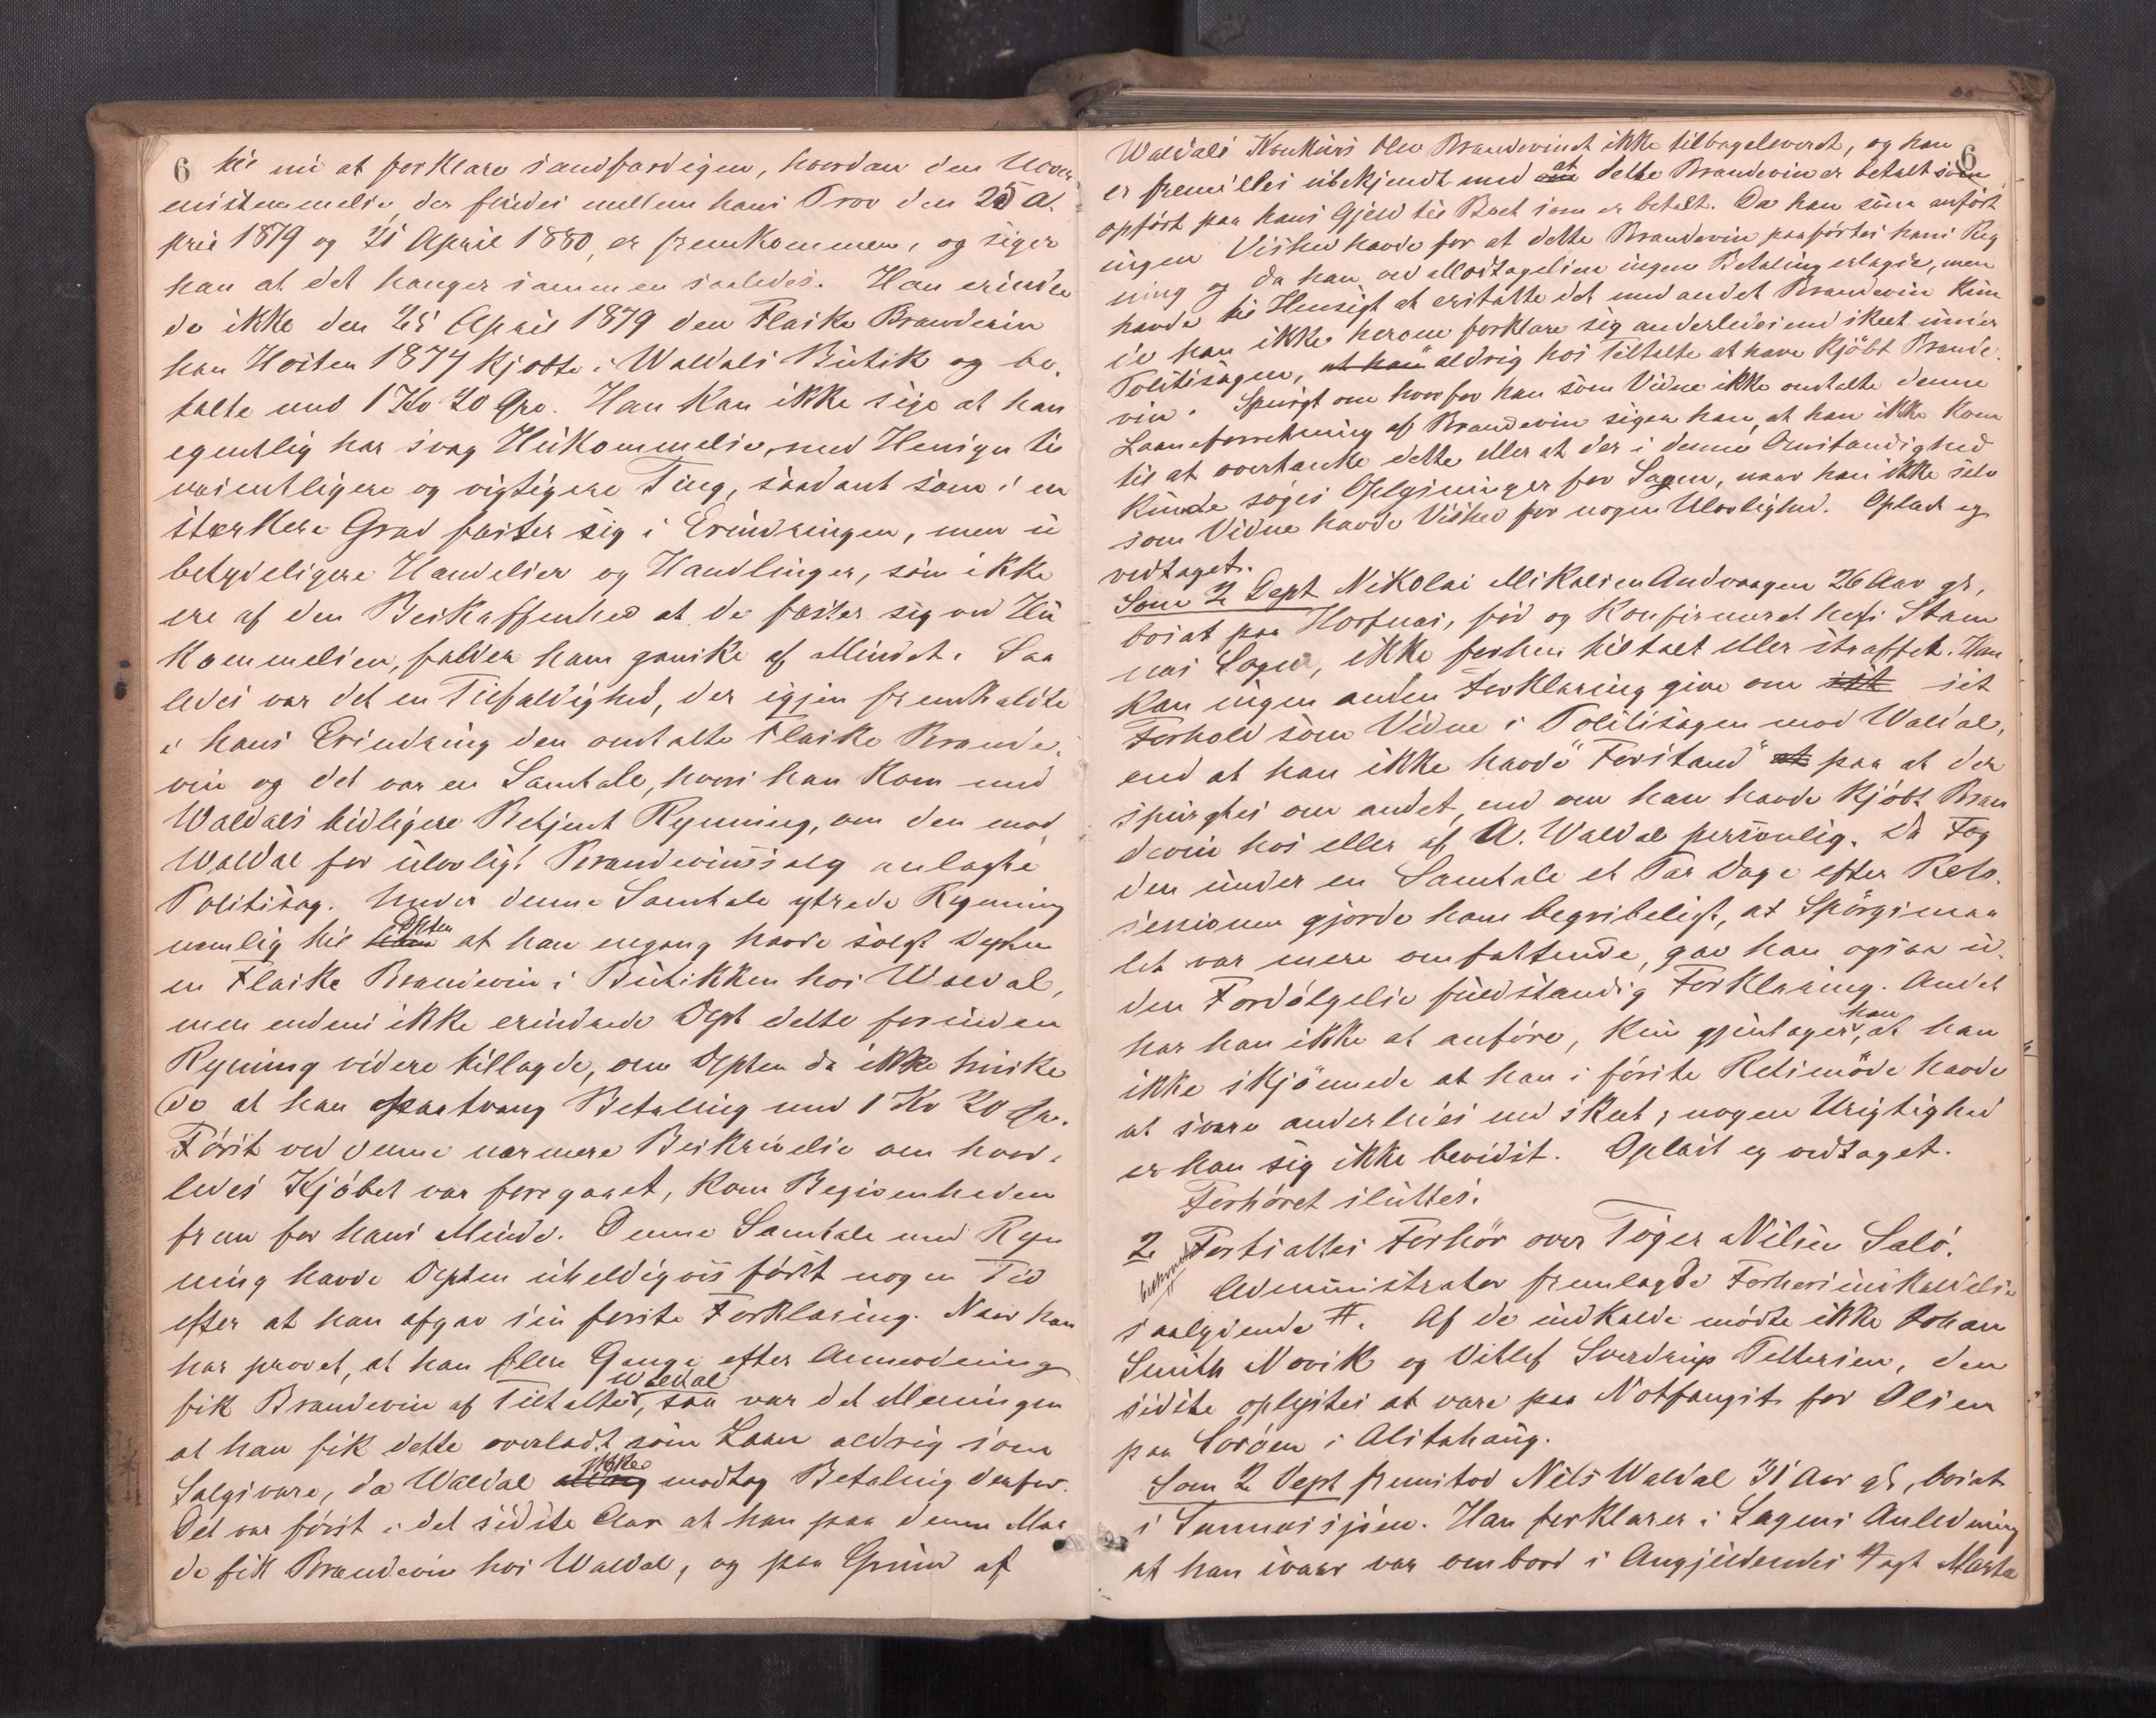 6 til nu at forklare sandfærdigen, hvordan den Uover
ensstemmelse, der findes mellem hans Prov den 25 A.
pril 1879 og 21 April 1880, er fremkommen, og siger
han at det hænger sammen saaledes. Han erindre
de ikke den 25 April 1879 den Flaske Brændevin
han Høsten 1877 kjøbte i Waldals Butik og be.
talte med 1 Kr 20 Øre. Han kan ikke sige at han
egentlig har svag Hukommelse, med Hensyn til
væsentligere og vigtigere Ting, saadant som i en
stærkere Grad fæster sig i Erindringen, men u
betydeligere Hændelser og Handlinger, som ikke
ere af den Beskaffenhed at de fæster sig ved Hu
kommelsen, falder ham ganske af Mindet. Saa
ledes var det en Tilfældighed, der igjen fremkaldte
i hans Erindring den omtalte Flaske Brænde.
vin og det var en Samtale, hvori han kom med
Waldals tidligere Betjent Rynning, om den mod
Waldal for ulovligt Brændevinssalg anlagte
Politisag. Under denne Samtale ytrede Rynning
nemlig til ham Depten at han engang havde solgt Depten
en Flaske Brændevin i Butikken hos Waldal,
men endnu ikke erindrede Dept dette forinden
Ryning videre tillagde, om Depten da ikke huske
de at han paatvang Betaling med 1 Kr 20 Øre.
Først ved denne nærmere Beskrivelse om hvor.
ledes Kjøbet var foregaaet, kom Begivenheden
frem for hans Minde. Denne Samtale med Ryn
ning havde Depten uheldigvis først nogen Tid
efter at han afgav sin første Forklaring. Naar han
har provet, at han flere Gange efter Anmodning
fik Brændevin af Tiltalte Waldal, saa var det Meningen
at han fik dette overladt som Laan aldrig som
Salgsvare, da Waldal aldrig ikke modtog Betaling derfor.
Det var først i det sidste Aar at han paa denne Maa
de fik Brændevin hos Waldal, og paa Grund af
6
Waldals Konkurs blev Brændevinet ikke tilbageleveret, og han
er fremdeles ubekjendt med om at dette Brændevin er betalt som
opført paa hans Gjeld til Boet som er betalt. Da han som anført
ingen Vished havde for at dette Brændevin paaførtes hans Reg
ning og da han ved Modtagelsen ingen Betaling erlagde, men
havde til Hensigt at erstatte det med andet Brændevin kun
de han ikke herom forklare sig anderledes end skeet under
Politisagen, at han aldrig hos Tiltalte at have kjøbt Brænde.
vin. Spurgt om hvorfor han som Vidne ikke omtalte denne
Laaneforretning af Brændevin siger han, at han ikke kom
til at overtænke dette eller at der i denne Omstændighed
kunde søges Oplysninger for Sagen, naar han ikke selv
som Vidne havde Vished for nogen Ulovlighed. Oplæst og
vedtaget.
Som 2 Dept Nikolai Mikalsen Andvaagen 26 Aar gl,
bosat paa Hofsnæs, fød og Konfirmeret her i Stam
næs Sogn, ikke forhen tiltalt eller straffet. Han
kan ingen anden Forklaring give om sit sit
Forhold som Vidne i Politisagen mod Waldal,
end at han ikke havde "Forstand" at paa at der
spurgtes om andet, end om han havde kjøbt Bræn
devin hos eller af A. Waldal personlig. Da Fog
den under en Samtale et Par Dage efter Rets.
sessionen gjorde ham begribeligt, at Spørgsmaa
let var mere omfattende, gav han ogsaa u.
den Fordølgelse fuldstændig Forklaring. Andet
har han ikke at anføre, kun gjentager han, at han
ikke skjønnede at han i første Retsmøde havde
at svare anderledes end skeet; nogen Urigtighed
er han sig ikke bevidst. Oplæst og vedtaget.
Forhøret sluttet.
2 Fortsattes Forhør over Tøger Nilsen Salø.
Administrator fremlagde Forhørsindkaldelse
saalydende #. Af de indkaldte mødte ikke Johan
Smith Novik og Ditlef Sverdrup Pettersen, den
sidste oplystes at være paa Notfangst for Olsen
paa Sorøen i Alstahaug.
Som 2 Dept fremstod Nils Waldal 31 Aar gl, bosat
i Sannessjøen. Han forklarer i Sagens Anledning
at han ivaar var ombord i Angjeldendes Jagt Marta